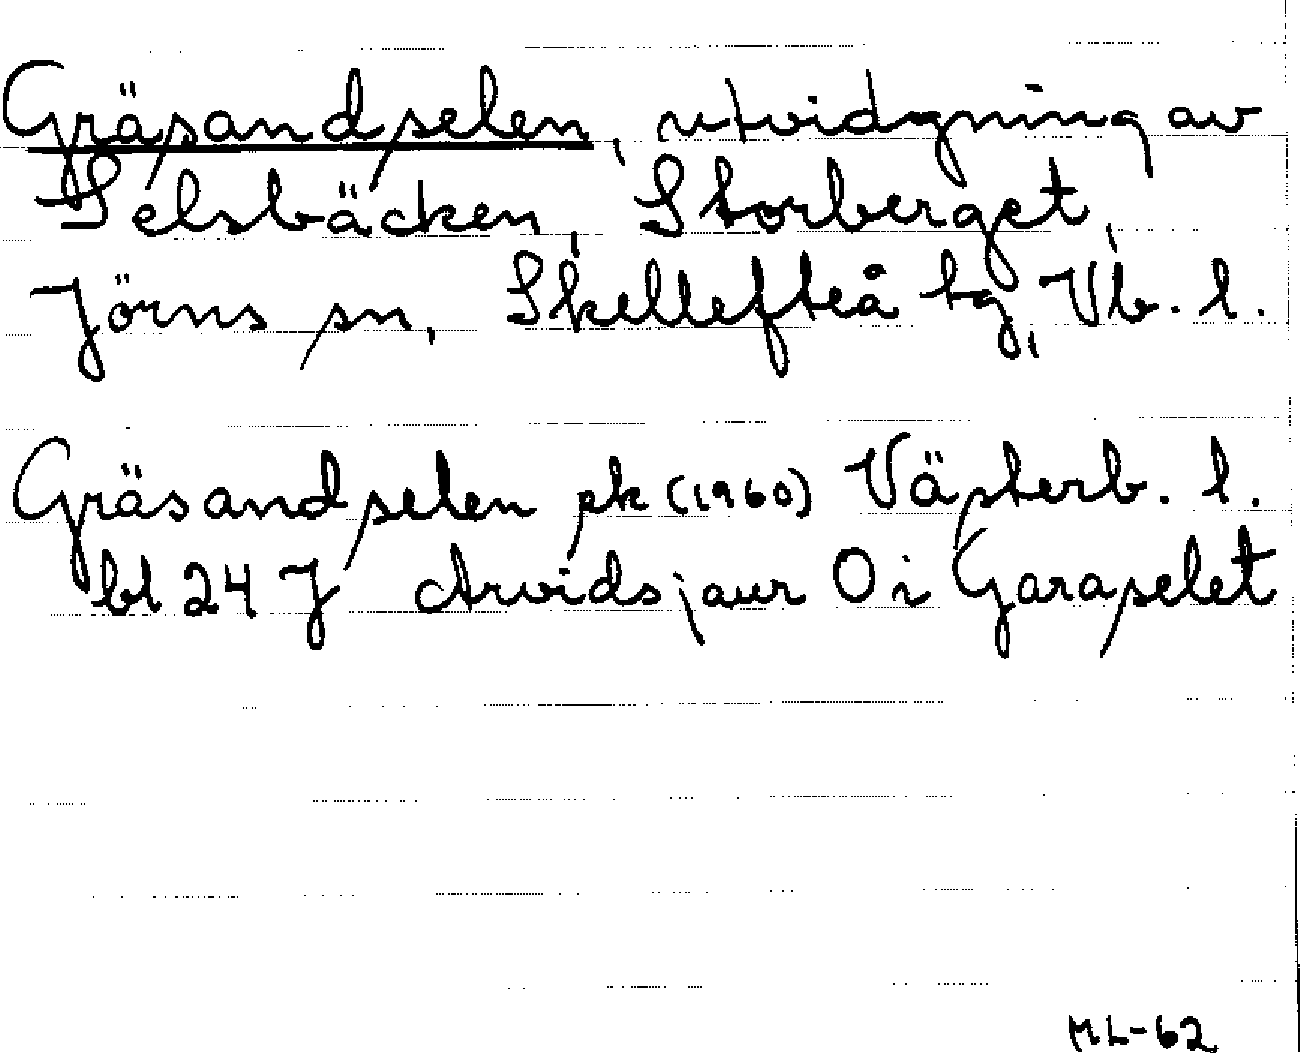 Gräsandselen, utvidgning av
Selsbäcken, Storberget,
Jörns sn, Skellefteå tg, Vb. l.
Gräsandselen pk (1960) Västerb. l.
bl 24 J Arvidsjaur O i Garaselet
ML-62